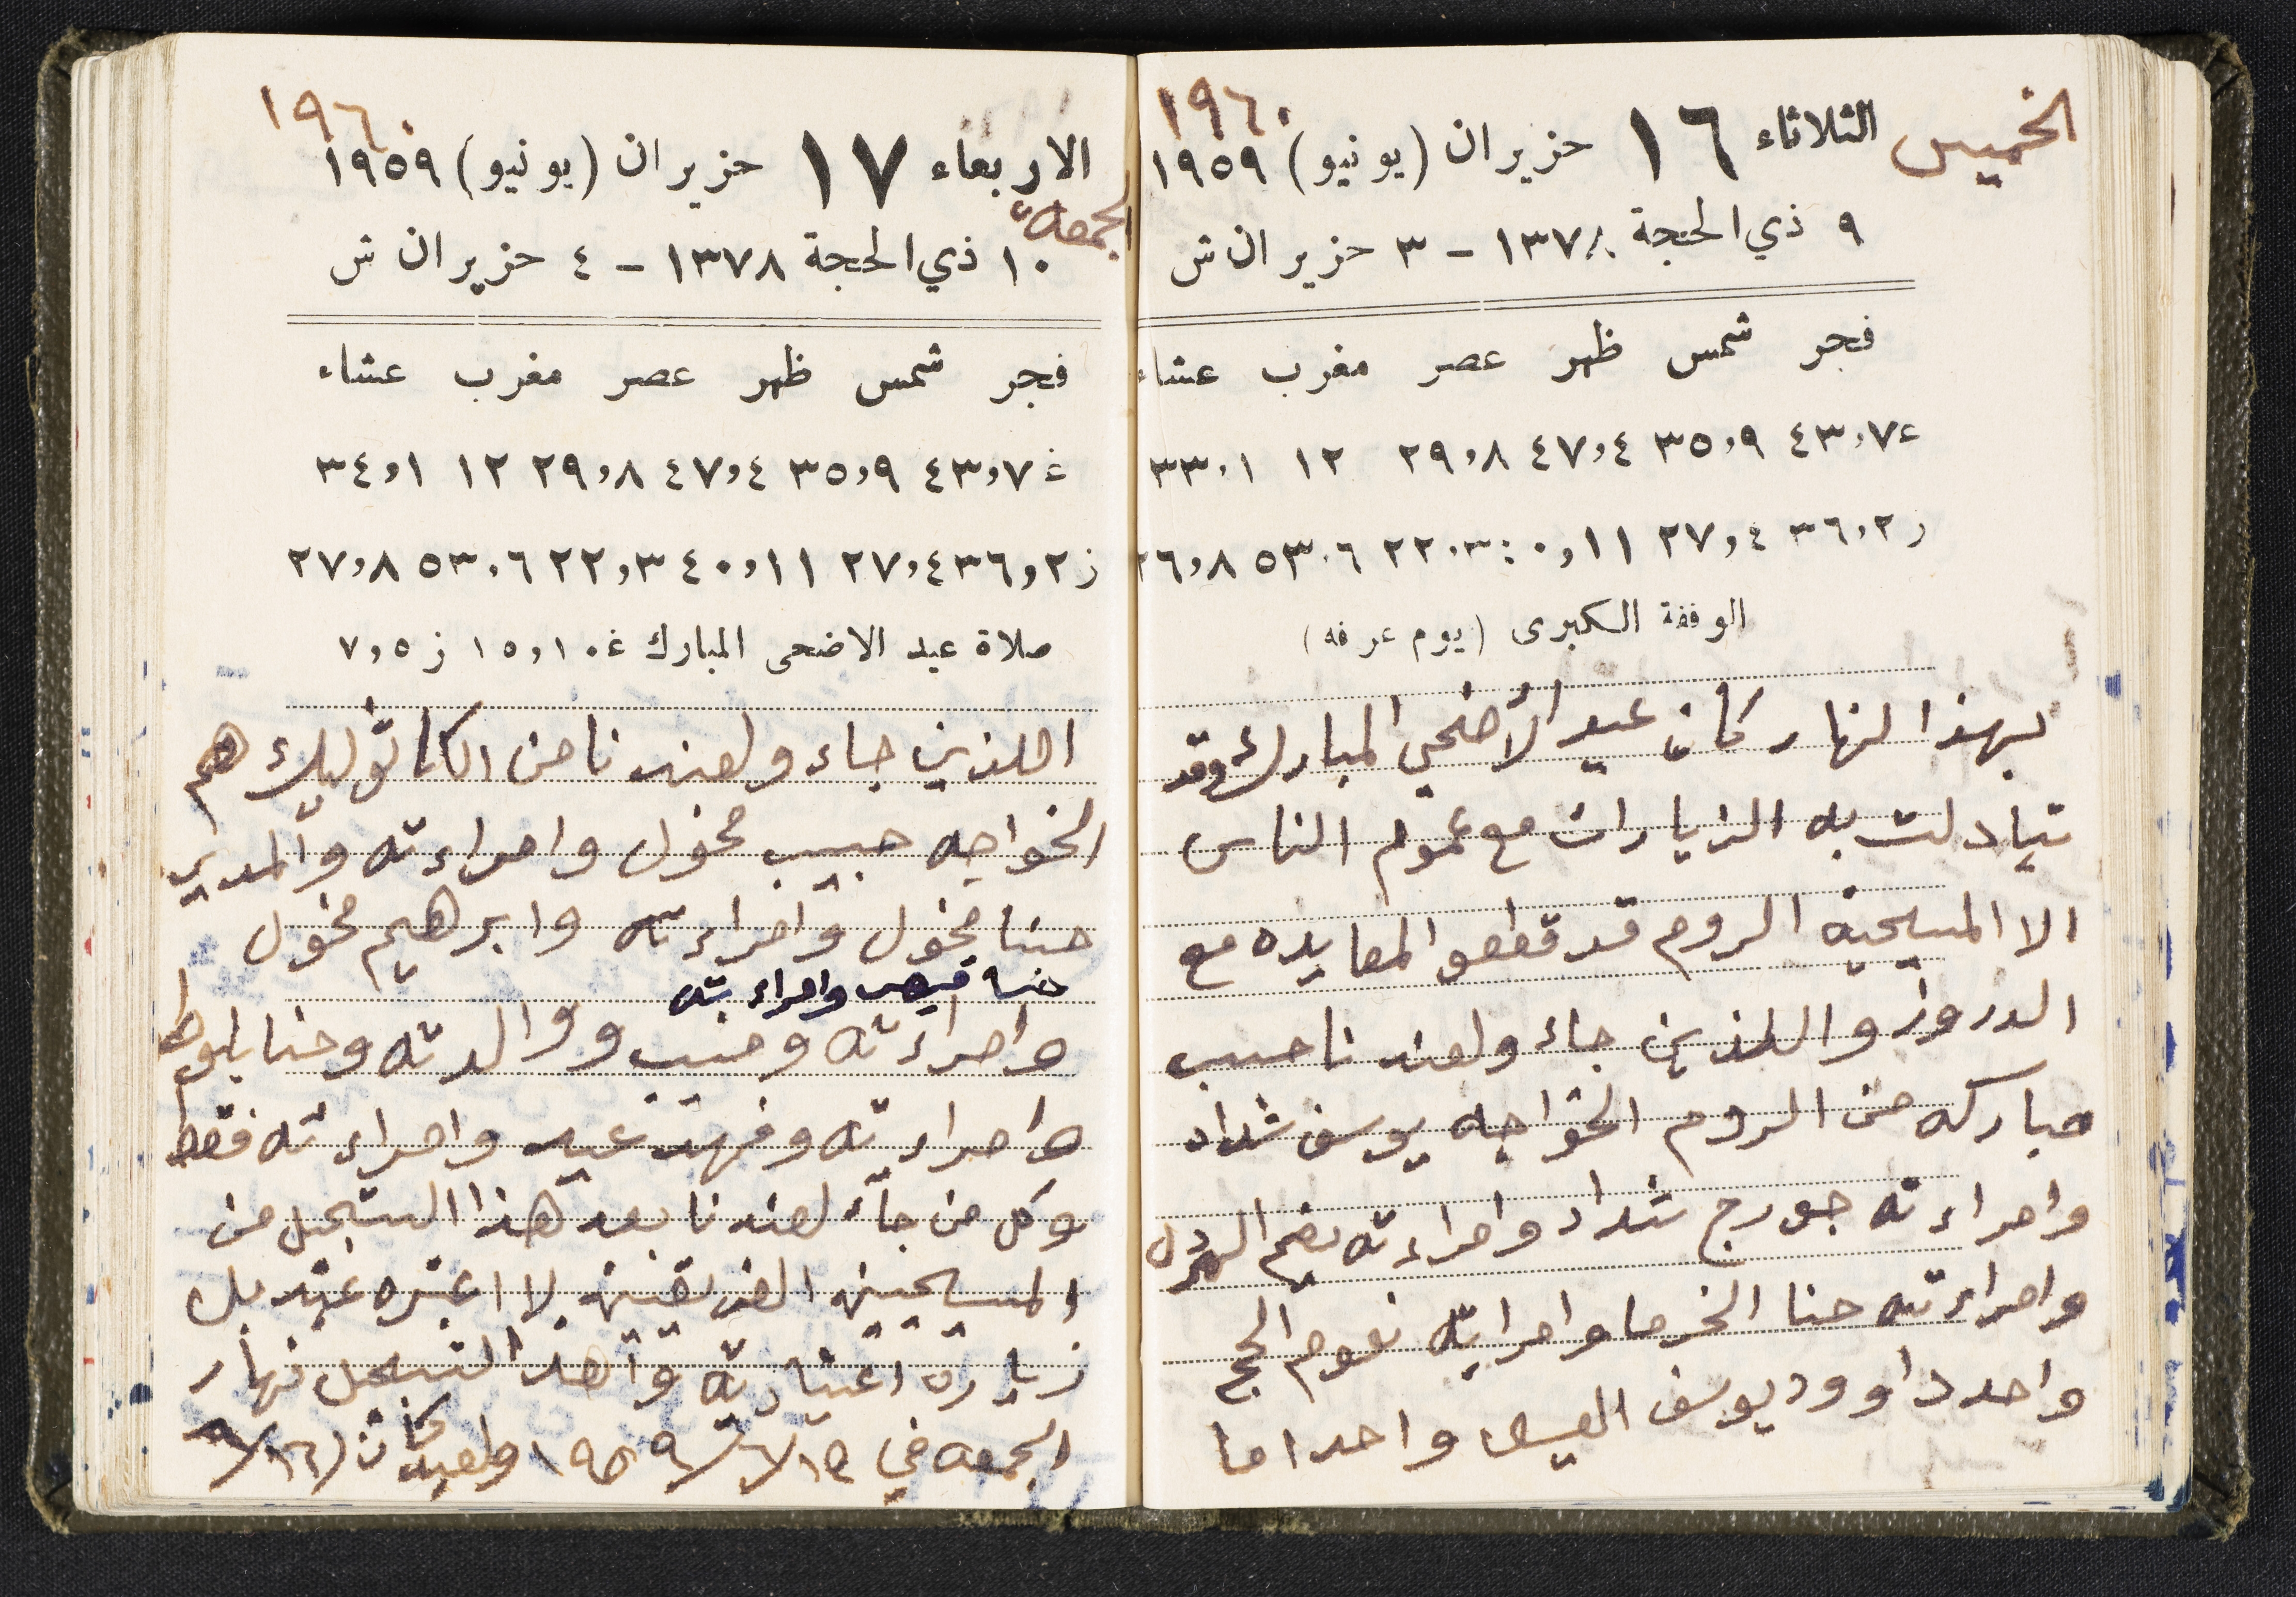 الخميس الثلاثاء ١٦ حزيران (يونيو) ١٩٥٩ ١٩٦٠
٩ ذي الحجة ١٣٧٨ - ٣ حزيران ش
فجر شمس ظهر عصر مغرب عشاء
غ ٧,٤٣ ٩,٣٥ ٤,٤٧ ٨,٢٩ ١٢ ١,٣٣
ز ٢,٣٦ ٤,٢٧ ١١,٤٠ ٣,٢٢ ٦,٥٣ ٨,٢٦
الوقفة الكبرى (يوم عرفه)
بهذا النهار كان عيد الأضحى المبارك وقد
تبادلت به الزيارات مع عموم الناس
الا المسيحيه الروم قد قطعو المعايده مع
الدروز واللذين جاء ولعندنا حسب
مباركه من الروم الخواجه يوسف شداد
وامراءته جورج شداد وامراءته نعيم
وامراءته حنا الخرما وامرايته نعوم الحج
واحد داوود يوسف القيس واحد اما
الاربعاء ١٧ حزيران (يونيو) ١٩٥٩ ١٩٦٠
الجمعه
١٠ ذي الحجة ١٣٧٨ - ٤ حزيران ش
فجر شمس ظهر عصر مغرب عشاء
غ ٧,٤٣ ٩,٣٥ ٤,٤٧ ٨,٢٩ ١٢ ١,٣٤
ز ٢,٣٦ ٤,٢٧ ١١,٤٠ ٣,٢٢ ٦,٥٣ ٨,٢٧
صلاة عيد الاضحى المبارك غ ١٠,١٥ ز ٥,٧
اللذين جاء ولعندنا من الكاثوليك هم
الخواجه حبيب مخول وامراءته والمدير
حنا مخول وامراءته وابرهيم مخول
حنا قيصر وامراءته
وامراءته وحبيب ووالدته وحنا بلوط
وامراءته وفهد عيد وامراءته فقط
وكل من جاء لعندنا بعد هذا السجل من
المسيحيين الفريقين لا اعتبره عيد بل
زياره اعتياديه وهذا التسجل نهار
الجمعه في ١٩٥٩/٦/١٩ والعيد كان ٦/١٦